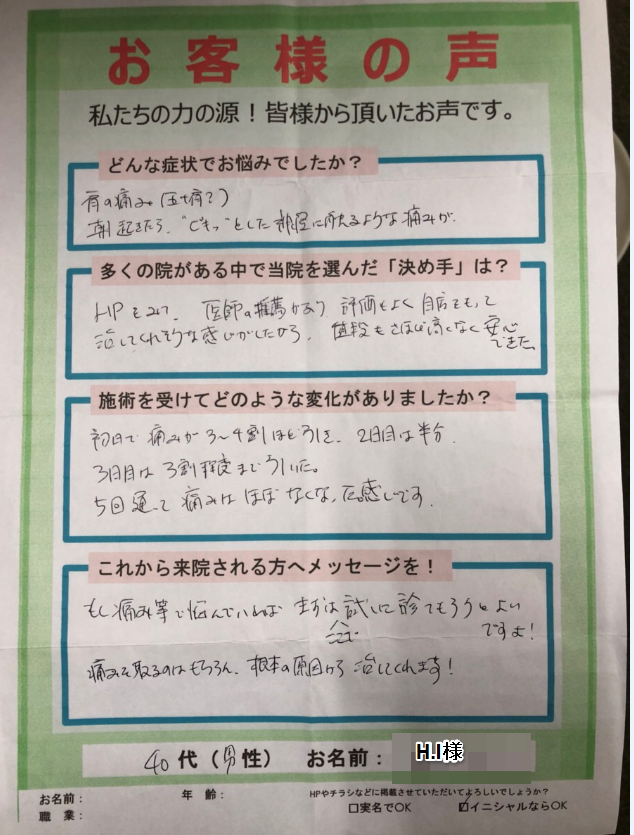 お客様の声
私たちの力の源！皆様から頂いたお声です。
どんな症状でお悩みでしたか？
肩の痛み(五十肩？)
朝起きたら、"ビキッ"とした 神経に応えるような 痛みが、
多くの院がある中で当院を選んだ「決め手」は？
HPをみて、医師の推薦があり 評価もよく 自信をもって
治してくれそうな感じがしたから。値段もさほど高くなく 安心
できた。
施術を受けてどのような変化がありましたか？
初日で 痛みが 3～4割ほどひき、2日目は半分、
3日目は 3割程度まで ひいた。
5回通って 痛みは ほぼ なくなった感じです。
これから来院される方へメッセージを！
もし痛み等で悩んでいれば まずは試しに 診てもらうとよい
ですよ！
痛みを取るのはもちろん、根本の原因から 治してくれます！
40代（男性） お名前： H.I様
お名前： 年齢： HPやチラシなどに掲載させていただいてよろしいでしょうか？
職業： □実名でOK ☑イニシャルならOK